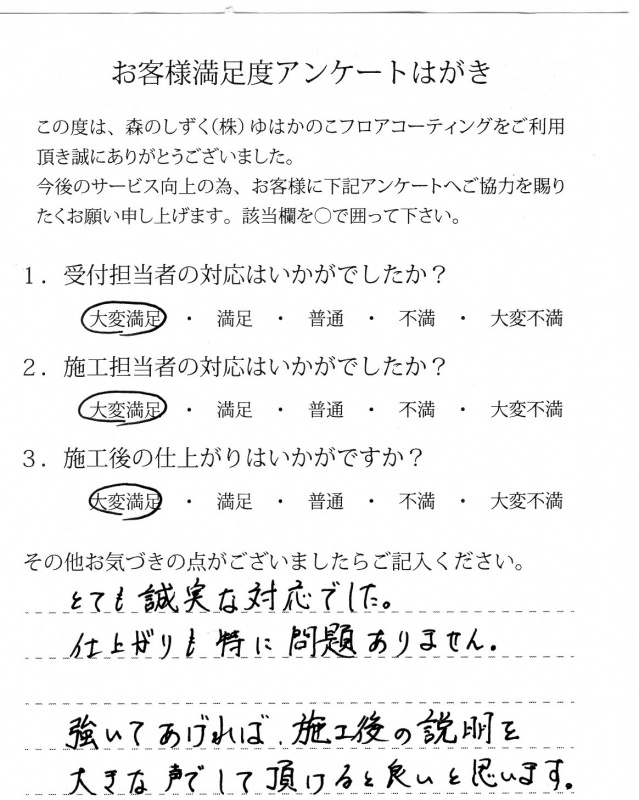 お客様満足度アンケートはがき
この度は、森のしずく(株)ゆはかのこフロアコーティングをご利用
頂き誠にありがとうございました。
今後のサービス向上の為、お客様に下記アンケートへご協力を賜り
たくお願い申し上げます。該当欄を〇で囲って下さい。
1．受付担当者の対応はいかがでしたか？
大変満足 ・ 満足 ・ 普通 ・ 不満 ・ 大変不満
2．施工担当者の対応はいかがでしたか？
大変満足 ・ 満足 ・ 普通 ・ 不満 ・ 大変不満
3．施工後の仕上がりはいかがですか？
大変満足 ・ 満足 ・ 普通 ・ 不満 ・ 大変不満
その他お気づきの点がございましたらご記入ください。
とても誠実な対応でした。
仕上がりも特に問題ありません。
強いてあげれば、施工後の説明を
大きな声でして頂けると良いと思います。